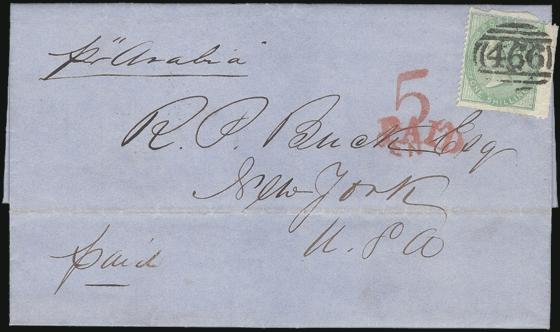 pr "Arabia"
466
ONE SHILLING
5
PAID
R. P. Buck Esq
New York
U. S A
paid